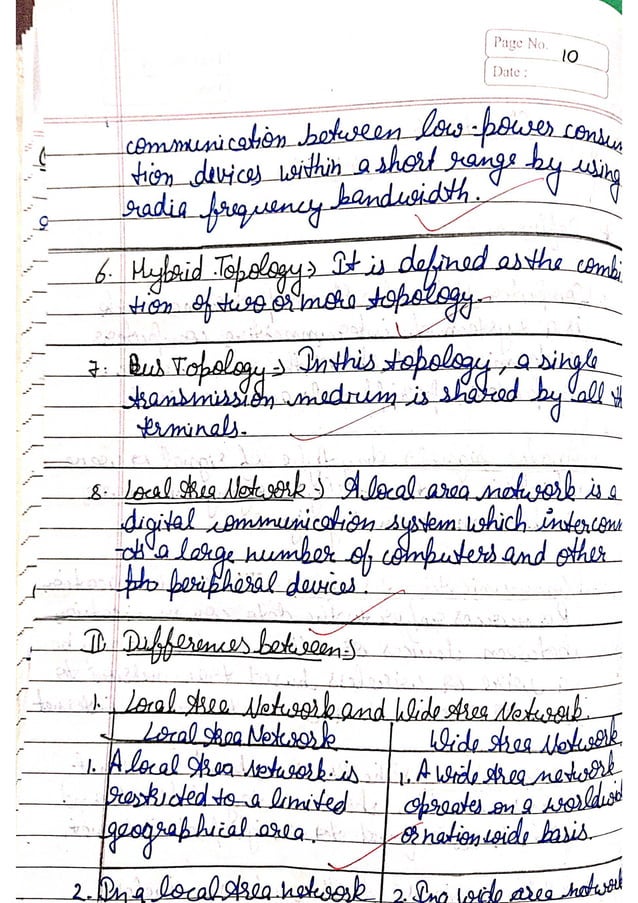 Page No. 10
Date :
communication between low-power consum
tion devices within a short range by using
radia frequency bandwidth.
6. Hybrid Topology → It is defined as the combi
tion of two or more topology.
7. Bus Topology → In this topology, a single
transmission medium is shared by all t
terminals.
8. Local Area Network → A local area network is a
digital communication system which interconn
-cts a large number of computers and other
peripheral devices.
II Differences between →
1. Local Area Network and Wide Area Network.
Local Area Network
1. A local Area network is
restricted to a limited
geographical area.
2. In a local Area network
Wide Area Network
1. A wide Area network
opreates on a worldwid
or nation wide basis.
2. In a wide area network